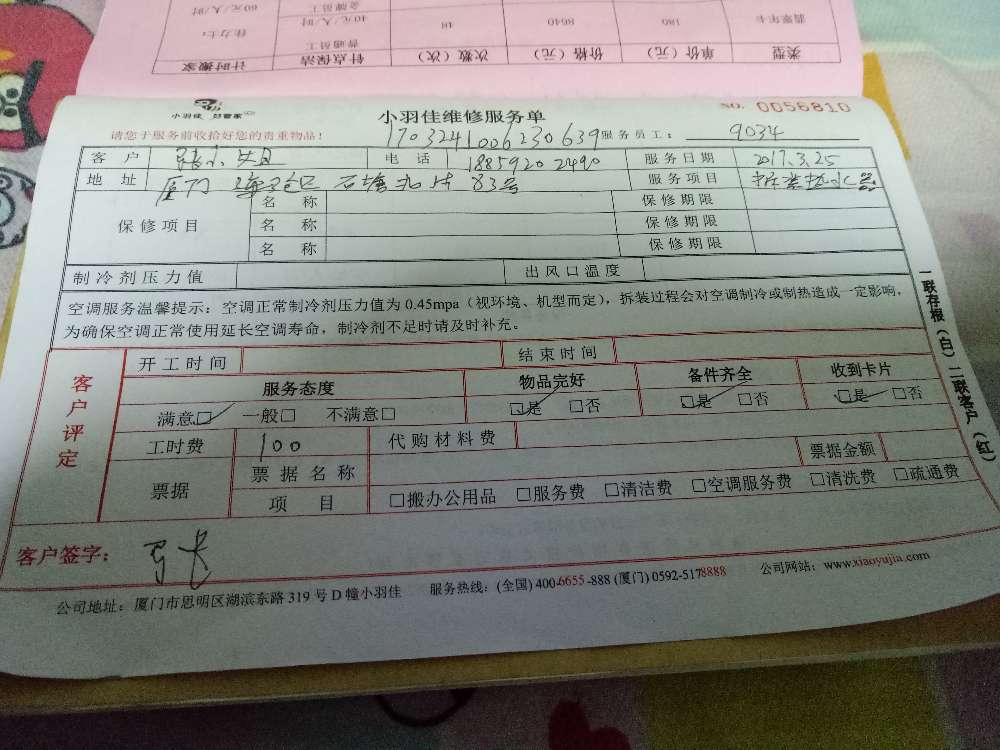 类型 单价（元） 价格（元） 次数（次） 钟点保洁 计时搬家
翡翠年卡 180 8640 48 普通员工 40元/人/时 佳力士：
金牌员工 60元/人/时
小羽佳 好管家
小羽佳维修服务单
NO. 0056810
请您于服务前收拾好您的贵重物品！
1703241006230639 服务员工： 9034
客户 电话 18859202490 服务日期 2017.3.25
地址 厦门 海沧区 石塘 83号 服务项目 拆装热水器
保修项目 名称 保修期限
名称 保修期限
名称 保修期限
制冷剂压力值 出风口温度
空调服务温馨提示：空调正常制冷剂压力值为 0.45mpa（视环境、机型而定），拆装过程会对空调制冷或制热造成一定影响，
为确保空调正常使用延长空调寿命，制冷剂不足时请及时补充。
客户评定
开工时间 结束时间
服务态度 物品完好 备件齐全 收到卡片
满意☑ 一般□ 不满意□ ☑是 □否 ☑是 □否 ☑是 □否
工时费 100 代购材料费
票据 票据名称 票据金额
项目 □搬办公用品 □服务费 □清洁费 □空调服务费 □清洗费 □疏通费
客户签字：
公司地址：厦门市思明区湖滨东路 319 号 D 幢小羽佳 服务热线：(全国) 400-6655-888 (厦门) 0592-5178888 公司网站：www.xiaoyujia.com
一联存根（白）二联客户（红）